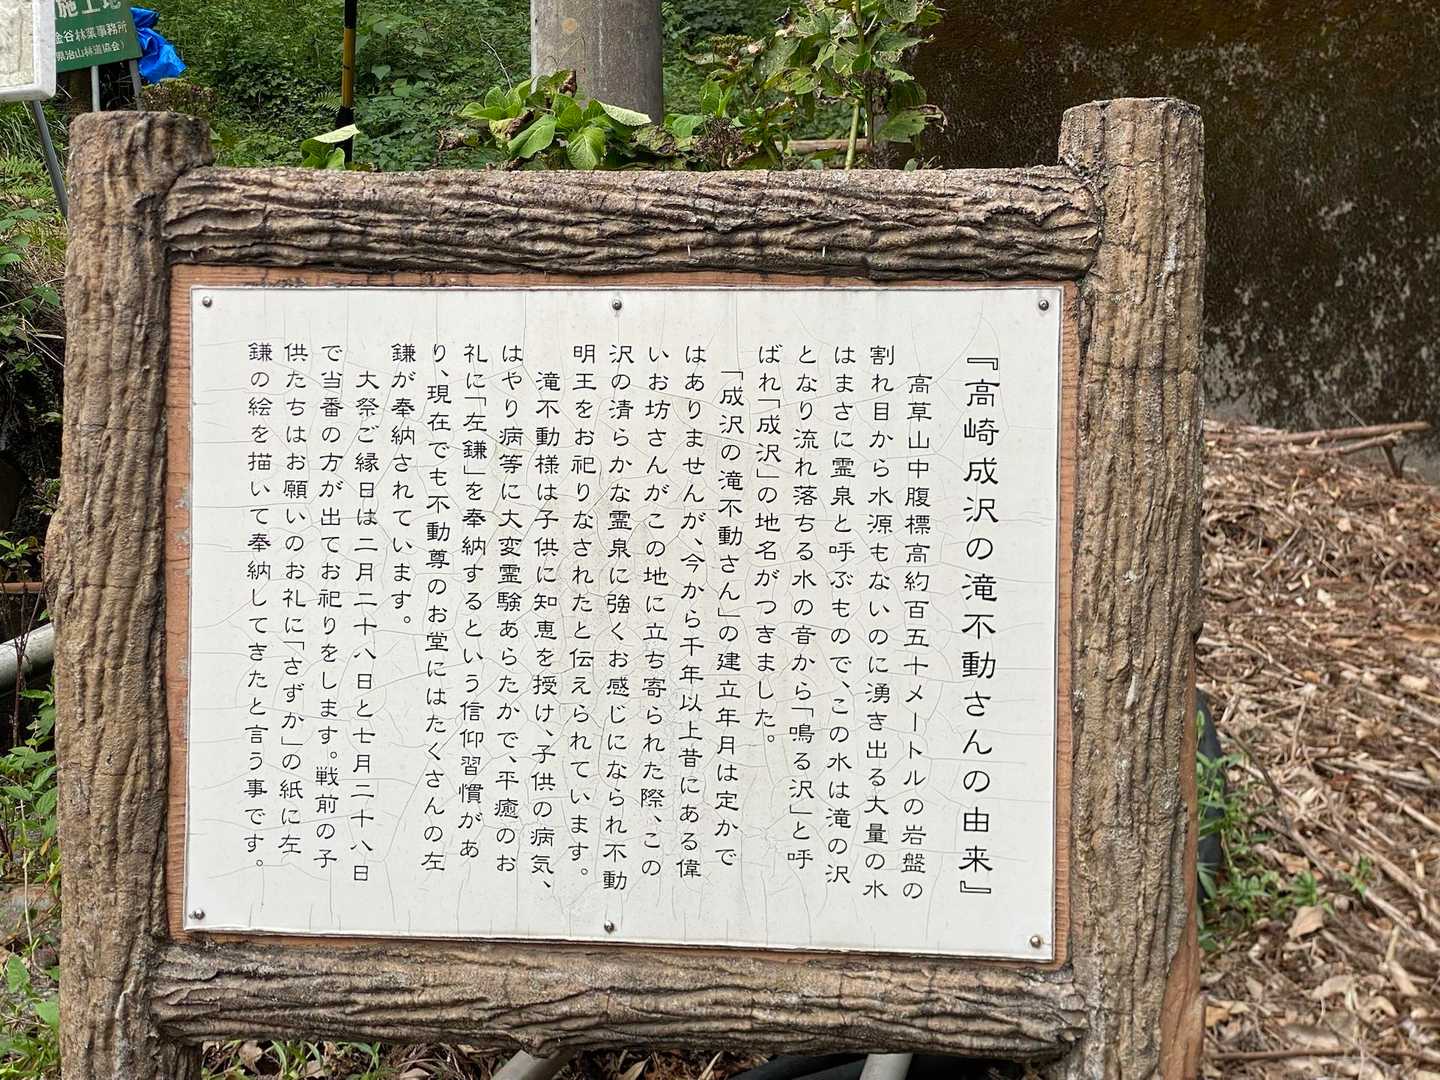 施工地
金谷林業事務所
県治山林道協会)
『高崎成沢の滝不動さんの由来』
高草山中腹標高約百五十メートルの岩盤の
割れ目から水源もないのに湧き出る大量の水
はまさに霊泉と呼ぶもので、この水は滝の沢
となり流れ落ちる水の音から「鳴る沢」と呼
ばれ「成沢」の地名がつきました。
「成沢の滝不動さん」の建立年月は定かで
はありませんが、今から千年以上昔にある偉
いお坊さんがこの地に立ち寄られた際、この
沢の清らかな霊泉に強くお感じになられ不動
明王をお祀りなされたと伝えられています。
滝不動様は子供に知恵を授け、子供の病気、
はやり病等に大変霊験あらたかで、平癒のお
礼に「左鎌」を奉納するという信仰習慣があ
り、現在でも不動尊のお堂にはたくさんの左
鎌が奉納されています。
大祭ご縁日は二月二十八日と七月二十八日
で当番の方が出てお祀りをします。戦前の子
供たちはお願いのお礼に「さずか」の紙に左
鎌の絵を描いて奉納してきたと言う事です。